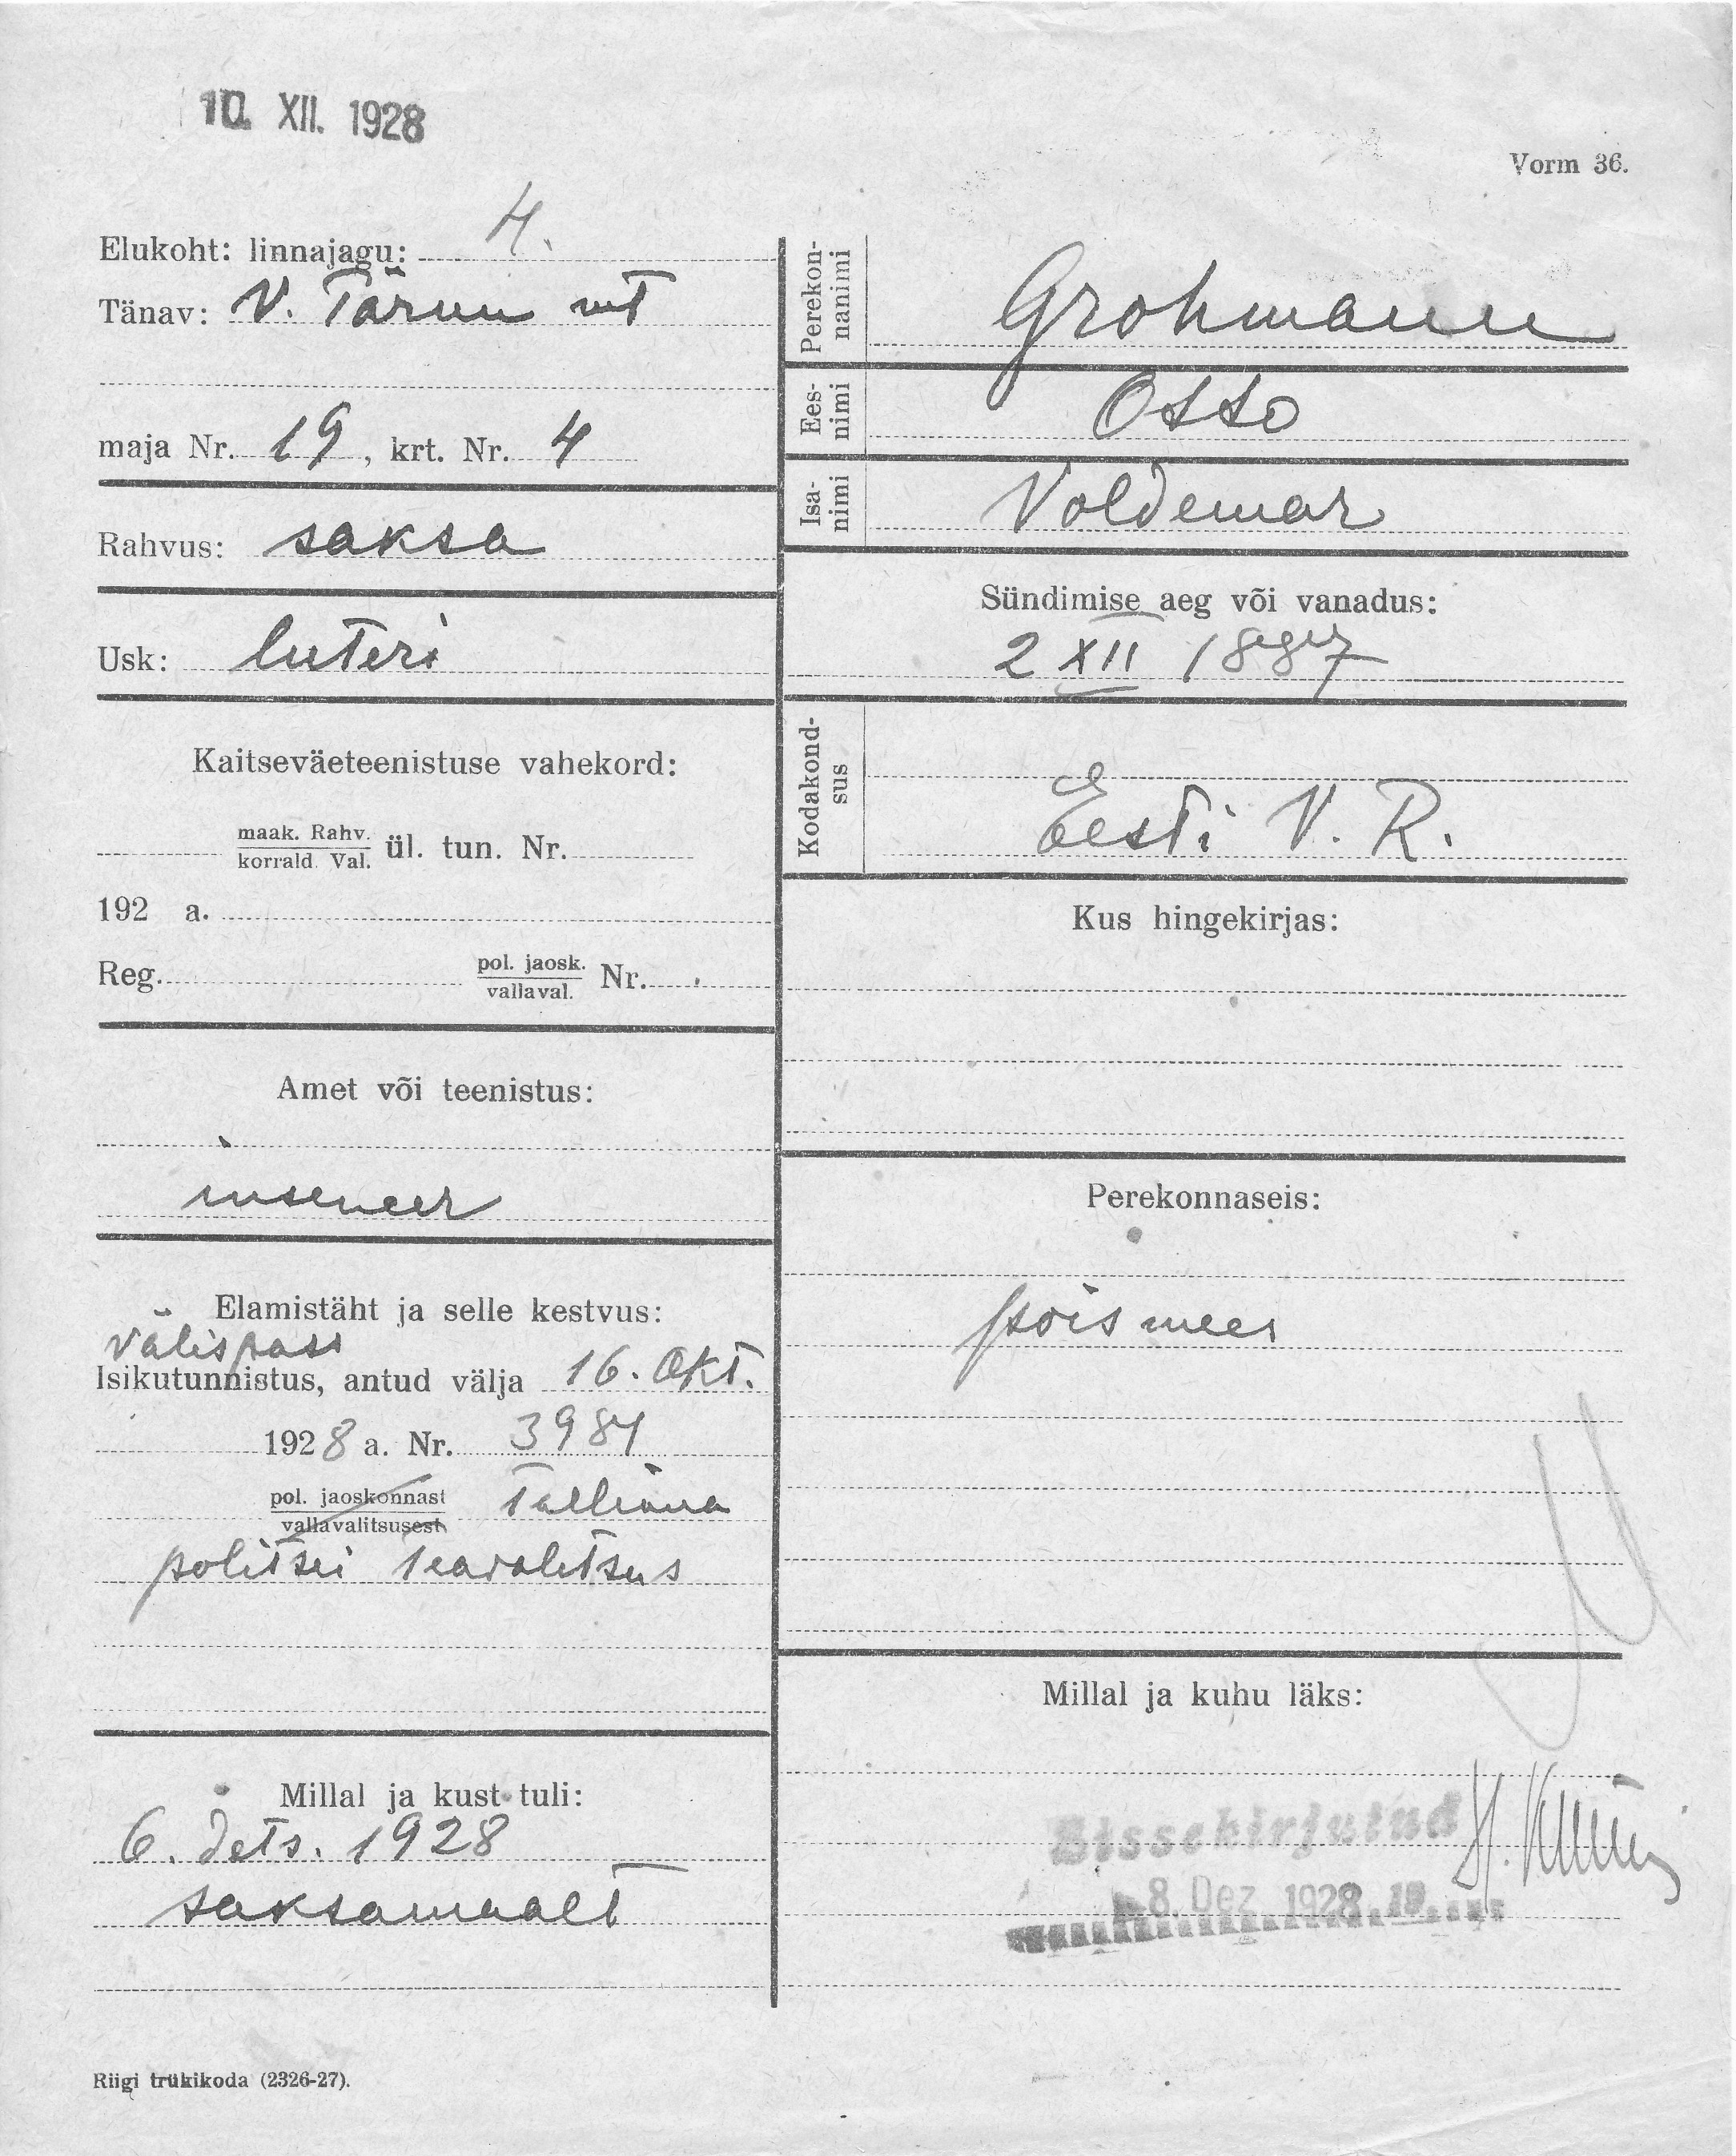 10. XII. 1928
Vorm 36.
Elukoht: linnajagu: 4.
Tänav: V. Tärnu mt
maja Nr. 19, krt. Nr. 4
Rahvus: saksa
Usk: luteri
Kaitseväeteenistuse vahekord:
maak. Rahv.
korrald. Val. ül. tun. Nr.
192 a.
Reg. pol. jaosk.
vallaval. Nr.
Amet või teenistus:
inseneer
Elamistäht ja selle kestvus:
välispass
Isikutunnistus, antud välja 16. Okt.
1928 a. Nr. 3984
pol. jaoskonnast Tallinna
vallavalitsusest
politsei
Millal ja kust tuli:
6. dets. 1928
saksamaalt
Riigi trükikoda (2326-27).
Perekon-
nanimi Grohmann
Ees-
nimi Otto
Isa-
nimi Voldemar
Sündimise aeg või vanadus:
2 XII 1887
Kodakond-
sus Eesti V. R.
Kus hingekirjas:
Perekonnaseis:
poismees
Millal ja kuhu läks:
Sissekirjutud
8. Dez. 1928